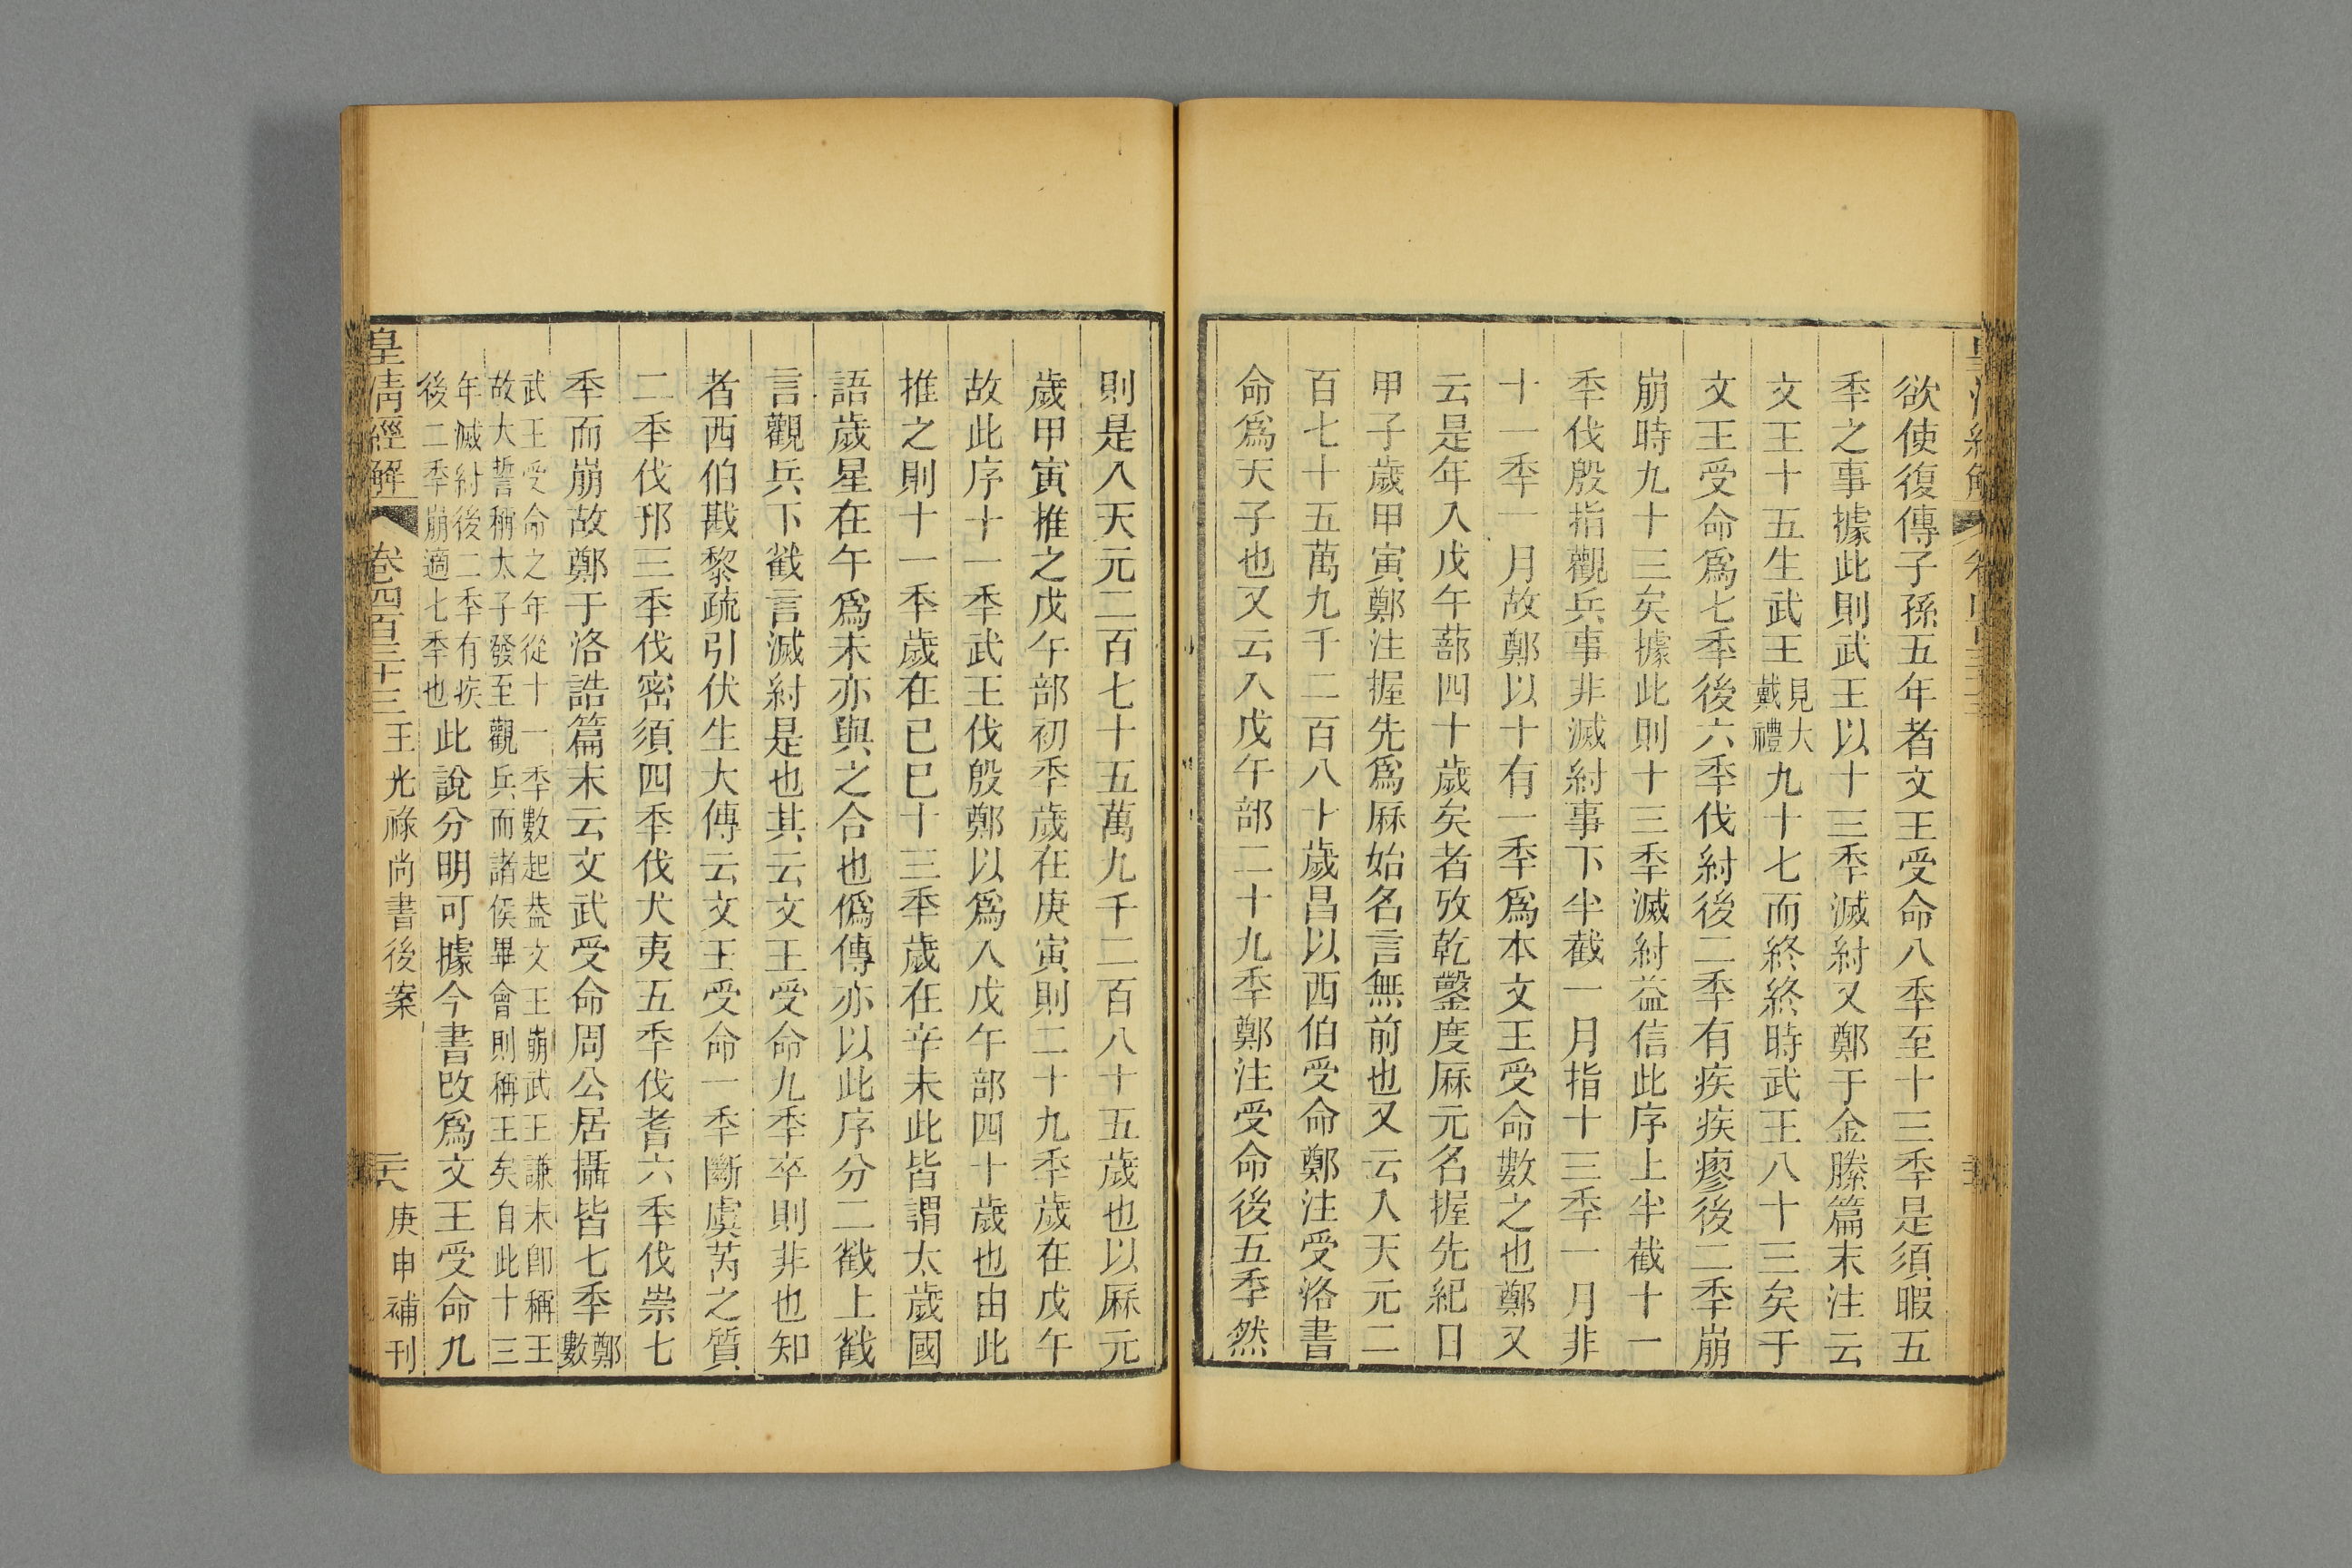 欲使復傳子孫五年者文王受命八秊至十三秊是須暇五
秊之事據此則武王以十三秊滅紂又鄭于金縢篇末注云
文王十五生武王見大戴禮九十七而終終時武王八十三矣于
文王受命爲七秊後六秊伐紂後二秊有疾疾瘳後二秊崩
崩時九十三矣據此則十三秊滅紂益信此序上半截十一
秊伐殷指觀兵事非滅紂事下半截一月指十三秊一月非
十一秊一月故鄭以十有一秊爲本文王受命數之也鄭又
云是年入戊午蔀四十歲矣者攷乾鑿度厤元名握先紀日
甲子歲甲寅鄭注握先爲厤始名言無前也又云入天元二
百七十五萬九千二百八十歲昌以西伯受命鄭注受洛書
命爲天子也又云入戊午部二十九秊鄭注受命後五秊然
則是入天元二百七十五萬九千二百八十五歲也以厤元
歲甲寅推之戊午部初秊歲在庚寅則二十九秊歲在戊午
故此序十一秊武王伐殷鄭以爲入戊午部四十歲也由此
推之則十一秊歲在己巳十三秊歲在辛未此皆謂太歲國
語歲星在午爲未亦與之合也僞傳亦以此序分二截上截
言觀兵下截言滅紂是也其云文王受命九秊卒則非也知
者西伯戡黎疏引伏生大傳云文王受命一秊斷虞芮之質
二秊伐邘三秊伐密須四秊伐犬夷五秊伐耆六秊伐崇七
秊而崩故鄭于洛誥篇末云文武受命周公居攝皆七秊鄭數
武王受命之年從十一秊數起葢文王崩武王謙未卽稱王
故大誓稱太子發至觀兵而諸侯畢會則稱王矣自此十三
年滅紂後二秊有疾
後二秊崩適七秊也此說分明可據今書改爲文王受命九
皇清經解
卷四百三十三王光祿尚書後案
庚申補刊